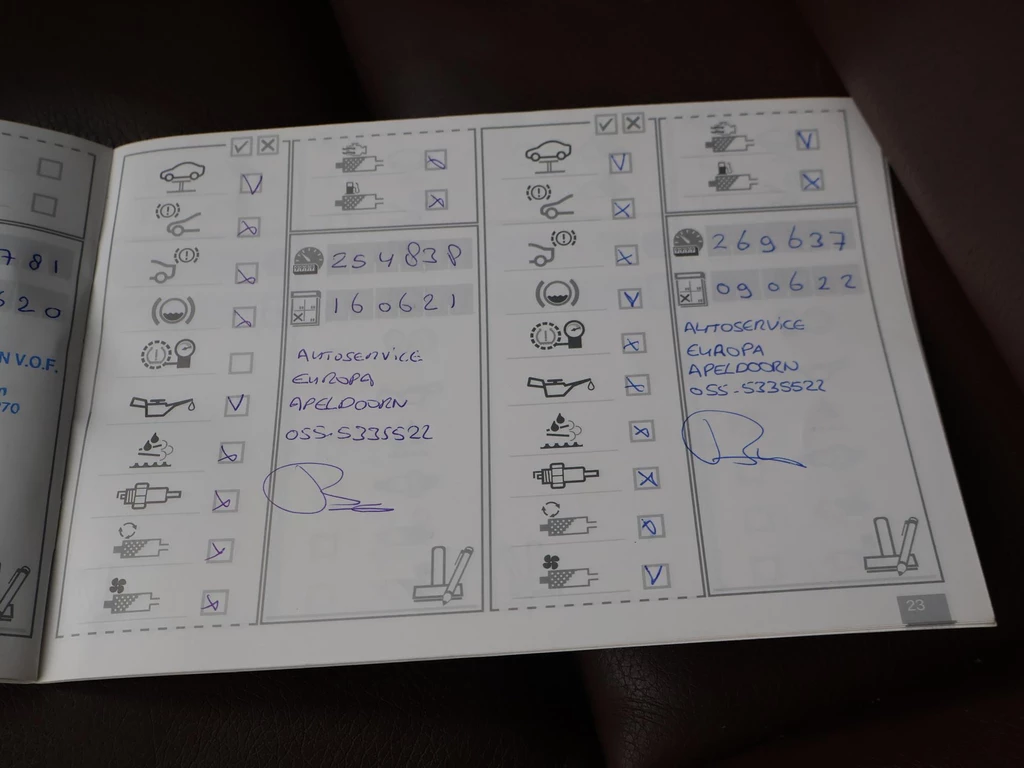 781
620
N V.O.F.
n
70
254838
160621
AUTOSERVICE
EUROPA
APELDOORN
055-5335522
269637
090622
AUTOSERVICE
EUROPA
APELDOORN
055-5335522
23